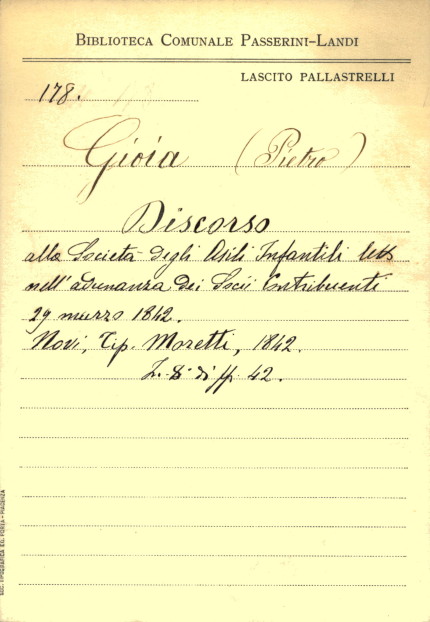 BIBLIOTECA COMUNALE PASSERINI-LANDI
LASCITO PALLASTRELLI
178.
Gioia (Pietro)
Discorso
alla Società degli Asili Infantili
nell'adunanza dei Socii Contribuenti
29 marzo 1842.
Novi, Tip. Moretti, 1842.
8° di pp. 42.
SOC. TIPOGRAFICA ED. PORTA - PIACENZA